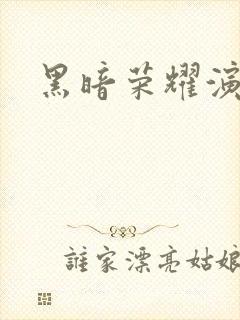 黑暗荣耀演
誰家漂亮姑娘